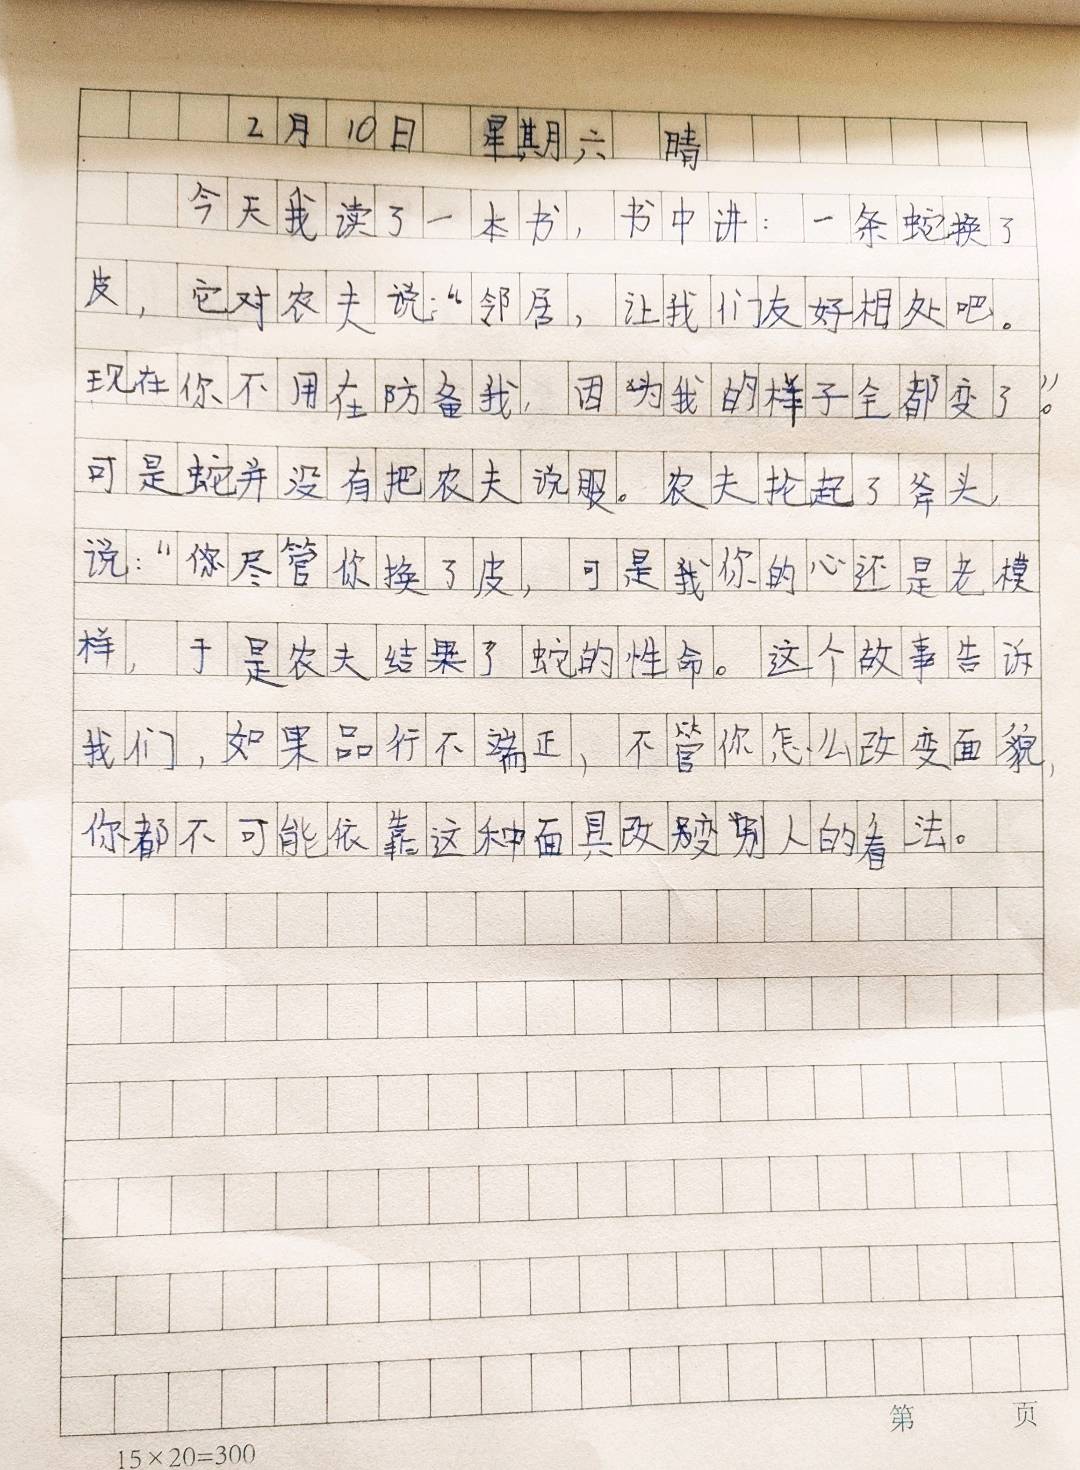 2月10日 星期六 晴
今天我读了一本书，书中讲：一条蛇换了
皮，它对农夫说：“邻居，让我们友好相处吧。
现在你不用在防备我，因为我的样子全都变了”。
可是蛇并没有把农夫说服。农夫抡起了斧头，
说：“你尽管你换了皮，可是我你的心还是老模
样，于是农夫结果了蛇的性命。这个故事告诉
我们，如果品行不端正，不管你怎么改变面貌，
你都不可能依靠这种面具改变别人的看法。
第 页
15×20=300